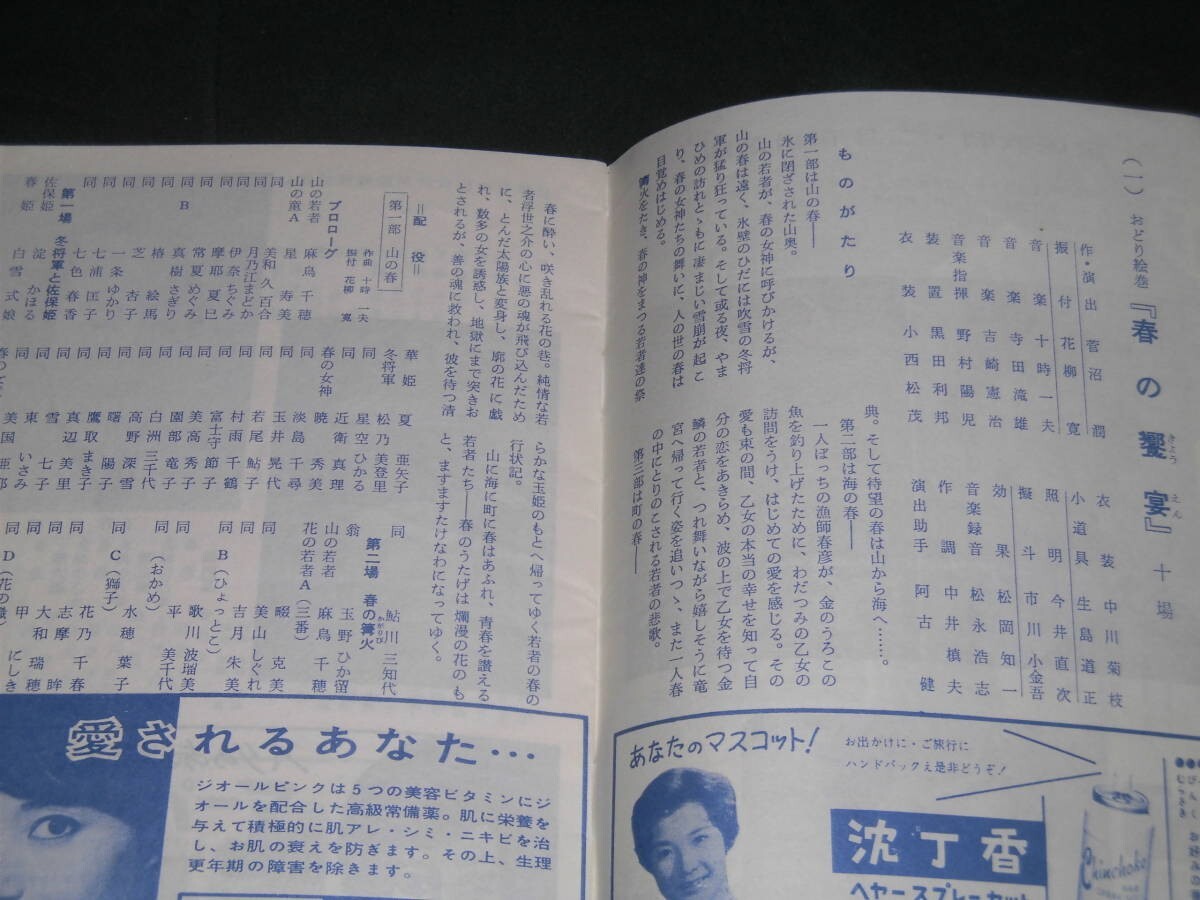 (一) おどり絵巻 『春の饗宴』 十場
きょうえん
作・演出 菅沼潤
振付 花柳寛
音楽 十時一夫
音楽 寺田滝雄
音楽 吉崎憲治
音楽指揮 野村陽児
装置 黒田利邦
衣装 小西松茂
衣装 中川菊枝
小道具 生島道正
照明 今井直次
擬斗 市川小金吾
効果 松岡知一
音楽録音 松永浩志
作調 中井槙夫
演出助手 阿古健
ものがたり
第一部は山の春――
氷に閉ざされた山奥。
山の若者が、春の女神に呼びかけるが、
山の春は遠く、氷壁のひだには吹雪の冬将
軍が猛り狂っている。そして或る夜、やま
ひめの訪れとゝもに凄まじい雪崩が起こ
り、春の女神たちの舞いに、人の世の春は
目覚めはじめる。
篝火をたき、春の神をまつる若者達の祭
典。そして待望の春は山から海へ……。
第二部は海の春――
一人ぼっちの漁師春彦が、金のうろこの
魚を釣り上げたために、わだつみの乙女の
訪問をうけ、はじめての愛を感じる。その
愛も束の間、乙女の本当の幸せを知って自
分の恋をあきらめ、波の上で乙女を待つ金
鱗の若者と、つれ舞いながら嬉しそうに竜
宮へ帰って行く姿を追いつゝ、また一人春
の中にとりのこされる若者の悲歌。
第三部は町の春――
春に酔い、咲き乱れる花の巷。純情な若
者浮世之介の心に悪の魂が飛び込んだため
に、とんだ太陽族と変身し、廓の花に戯
れ、数多の女を誘惑し、地獄にまで突きお
とされるが、善の魂に救われ、彼を待つ清
らかな玉姫のもとへ帰ってゆく若者の春の
行状記。
山に海に町に春はあふれ、青春を讃える
若者たち――春のうたげは爛漫の花のも
と、ますますたけなわになってゆく。
=配役=
第一部 山の春
作曲 十時一夫
振付 花柳寛
プロローグ
山の若者 麻鳥千穂
山の童A 星寿美
同 美和久百合
同 月乃江まどか
同 伊奈ちぐみ
同 摩耶夏巳
同 常夏めぐみ
B 真樹さぎり
同 椿絵馬
同 芝杏子
同 一条ゆかり
同 七浦匡子
同 七色春香
第一場 冬将軍と佐保姫
佐保姫 淀かほる
春姫 白雪式娘
華姫 夏亜矢子
冬将軍 松乃美登里
同 星空ひかる
同 近衛真理
春の女神 暁秀美
同 淡島千尋
同 玉井晃代
同 若尾鮎子
同 村雨千鶴
同 富士守節子
同 美高秀子
同 園部竜子
同 白洲三千代
同 高野深雪
同 曙陽子
同 鷹取まき子
同 真辺美里
同 雪七子
同 東いさみ
同 美国亜
同 鮎川三知代
第二場 春の篝火
かがりび
翁 玉野ひか留
山の若者 麻鳥千穂
花の若者A(三番)
畷克美
同 美山しぐれ
同 吉月朱美
B(ひょっとこ)
歌川波瑠美
同 平美千代
(おかめ)
同 水穂葉子
C(獅子)
花乃千春
同 志摩眸
同 大和瑞穂
同 甲にしき
D(花の
愛されるあなた…
ジオールピンクは5つの美容ビタミンにジ
オールを配合した高級常備薬。肌に栄養を
与えて積極的に肌アレ・シミ・ニキビを治
し、お肌の衰えを防ぎます。その上、生理
更年期の障害を除きます。
あなたのマスコット!
お出かけに・ご旅行に
ハンドバックえ是非どうぞ!
沈丁香
ヘヤースプレーセット
Chinchoko